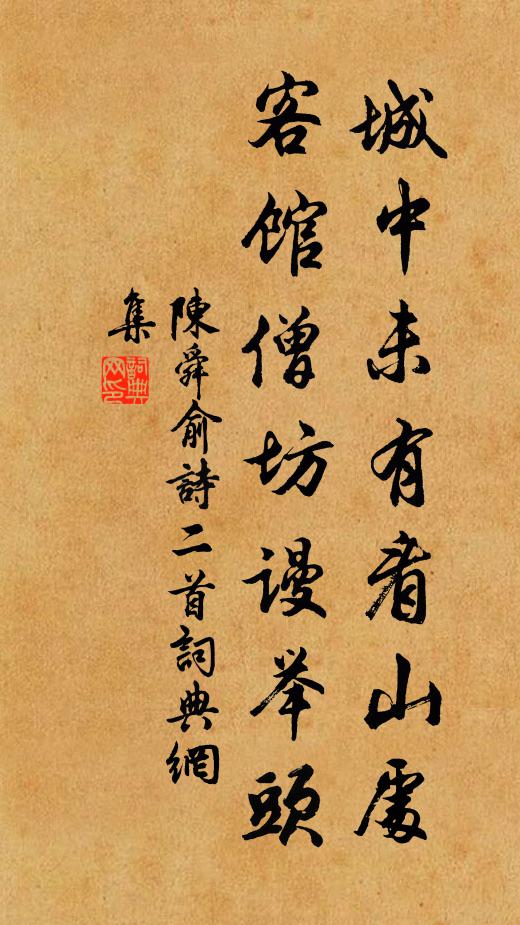 城中未有看山處
客馆僧坊谩举頭
陳舜俞詩二首詞典網
集
詞典网印